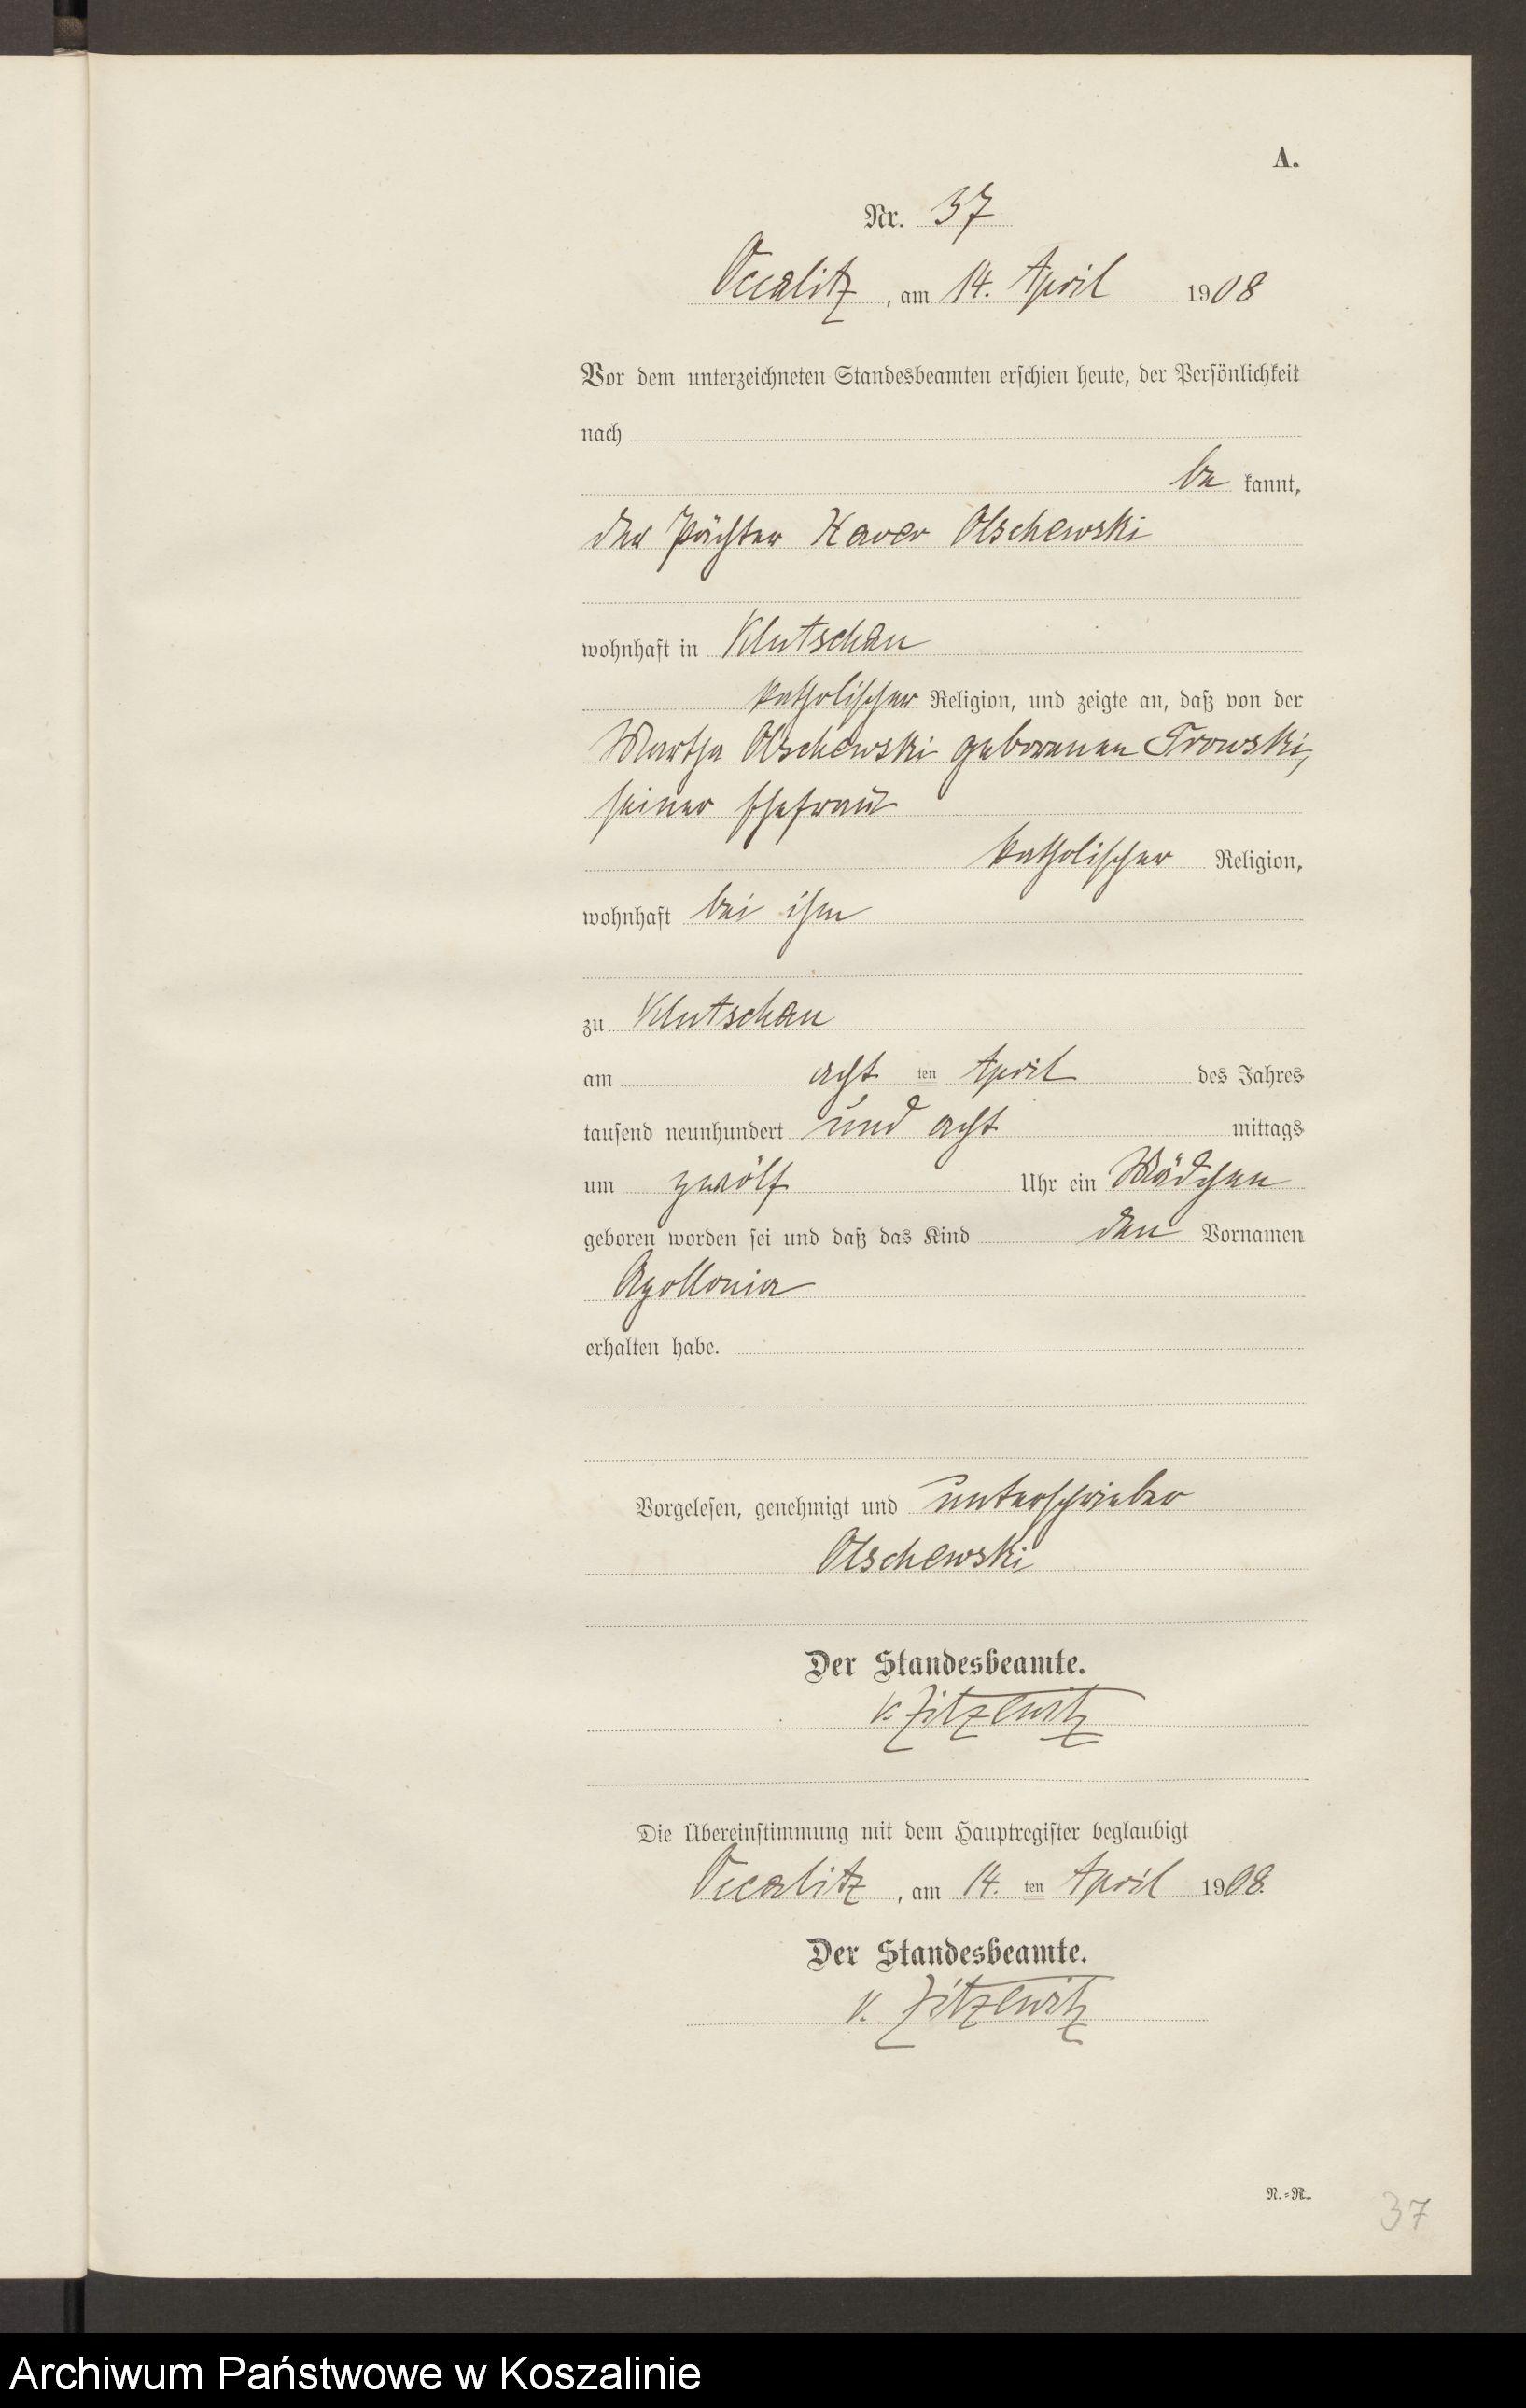 A.
Nr. 37
Occalitz, am 14. April 1908
Vor dem unterzeichneten Standesbeamten erschien heute, der Persönlichkeit
nach
be kannt,
der Pächter Xaver Olschewski
wohnhaft in Klutschau
katholischer Religion, und zeigte an, daß von der
Martha Olschewski geborenen Trowski,
seiner Ehefrau
katholischer Religion,
wohnhaft bei ihm
zu Klutschau
am acht ten April des Jahres
tausend neunhundert und acht mittags
um zwölf Uhr ein Mädchen
geboren worden sei und daß das Kind den Vornamen
Apollonia
erhalten habe.
Vorgelesen, genehmigt und unterschrieben
Olschewski
Der Standesbeamte.
v. Zitzewitz
Die Übereinstimmung mit dem Hauptregister beglaubigt
Occalitz, am 14. ten April 1908.
Der Standesbeamte.
v. Zitzewitz
N.=R.
37
Archiwum Państwowe w Koszalinie